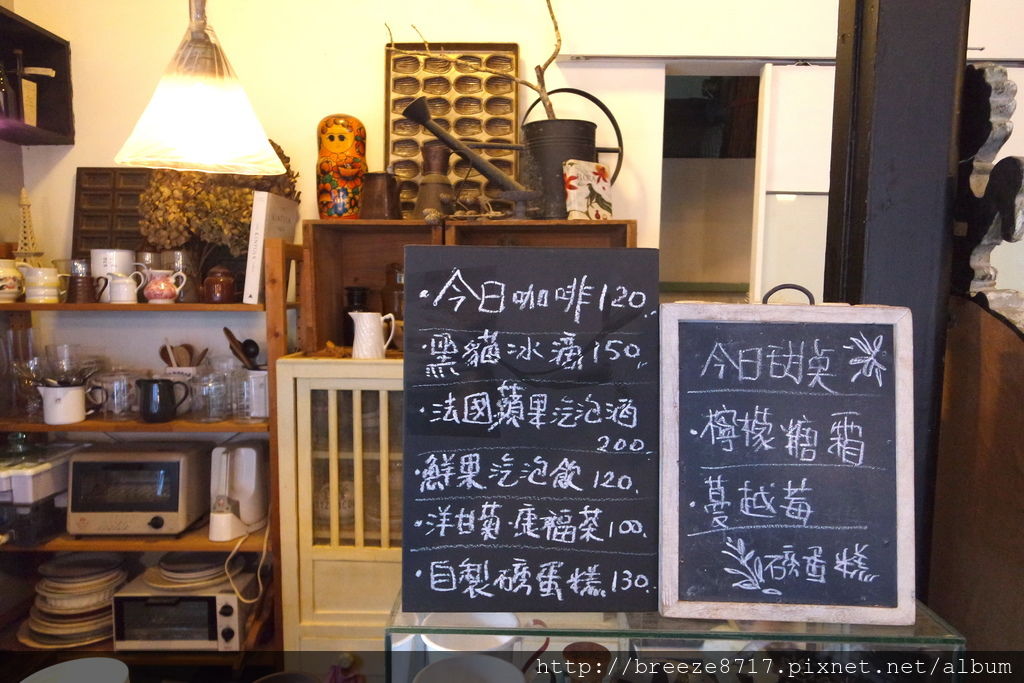 ·今日咖啡120.
·黑貓冰滴150.
·法國蘋果汽泡酒
200.
·鮮果汽泡飲120.
·洋甘菊·鹿福茶100.
·自製磅蛋糕130.
今日甜點
·檸檬糖霜
·蔓越莓
磅蛋糕
http://breeze8717.pixnet.net/album